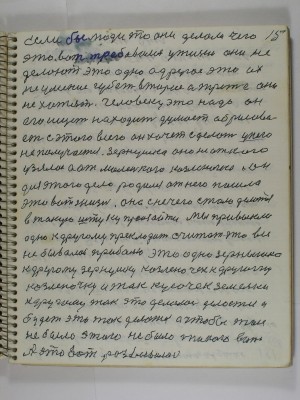 если бы люди то они делали чего 15
это вот требования ужизни они не
делают это одно а другое это их
неумение губет втарое а трете они
не хотят. Человеку это надо он
его ищит находит думает
ет с этого всего он хочет сделат у него
неполучается. Зернушка оно на такого
узелка от маленького колосочка. он
для этого дело родился от него пошла
это вот жизн, она с нечего стала делится
в такую штуку произайти. Мы привыкли
одно к другому прикладит считат это вы
не бывалая прибаль это одно зернешко
к другому зернушку колосочек к другому
колосочку и так кусочек земельки
к другому так это делалос делается и
будет это так делатся а чтобы так
не было этого не было такого вот
А это вот развивалос